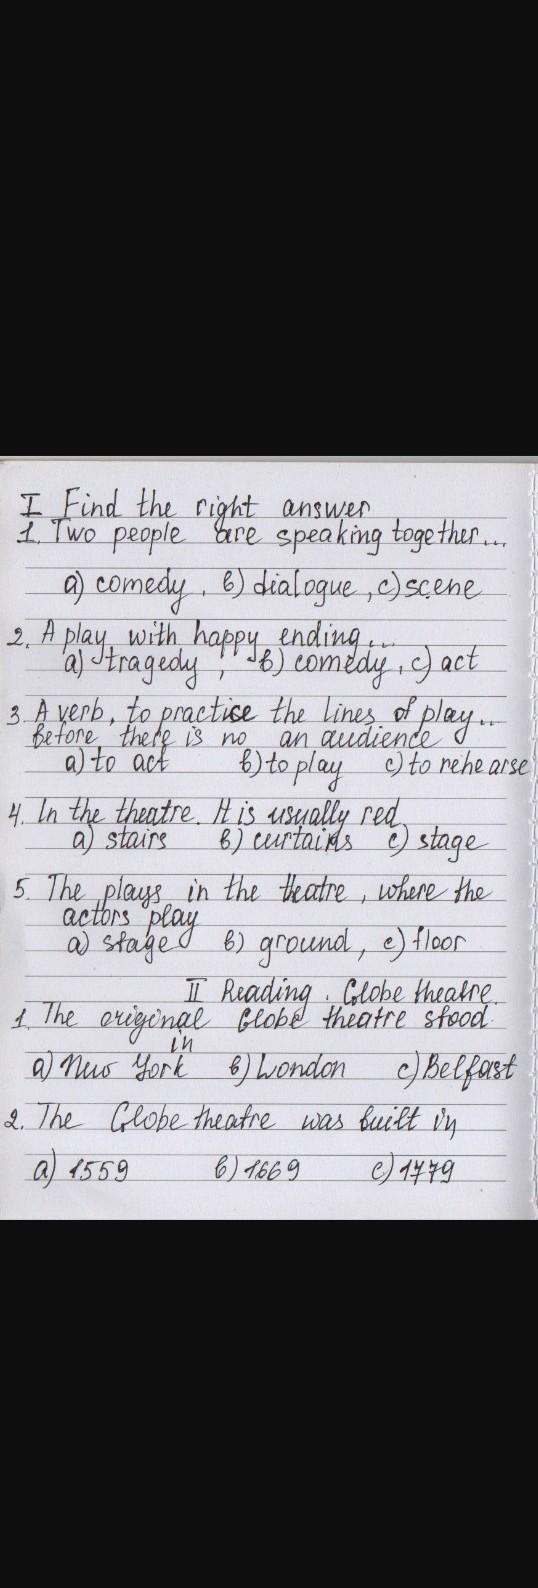 I Find the right answer
1. Two people are speaking together...
a) comedy, b) dialogue, c) scene
2. A play with happy ending...
a) tragedy, b) comedy, c) act
3. A verb, to practice the lines of play...
before there is no an audience
a) to act b) to play c) to rehearse
4. In the theatre. It is usually red.
a) stairs b) curtains c) stage
5. The plays in the theatre, where the
actors play
a) stage b) ground, c) floor
II Reading. Globe theatre.
1. The original Globe theatre stood
in
a) New York b) London c) Belfast
2. The Globe theatre was built in
a) 1559 b) 1669 c) 1779